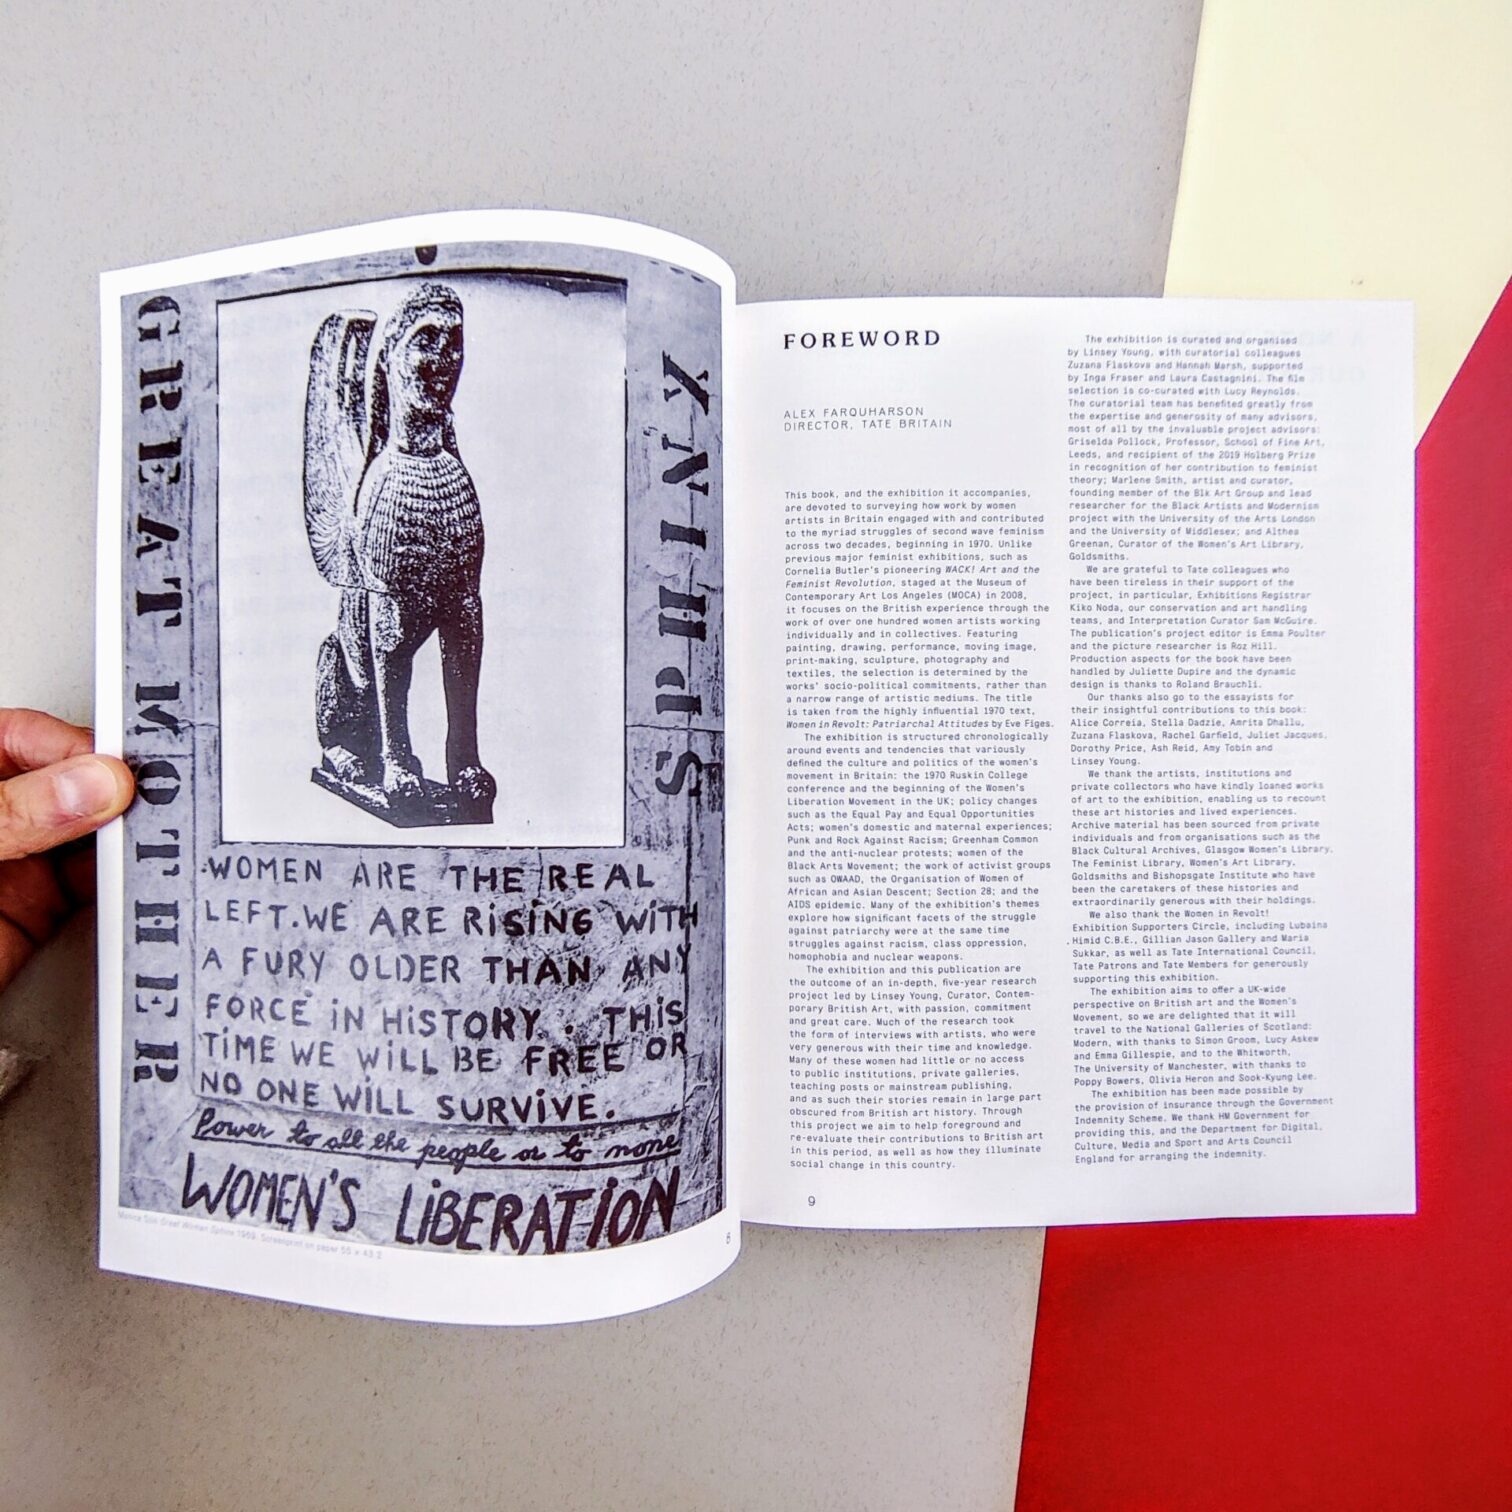 GREAT MOTHER
SPHINX
.WOMEN ARE THE REAL
LEFT.WE ARE RiSiNG WiTH
A FURY OLDER THAN ANY
FORCE iN HiSTORY. THiS
TiME WE WiLL BE FREE OR
NO ONE WiLL SURViVE.
Power to all the people or to none
WOMEN'S LiBERATiON
1969. Screenprint on paper 55 x 43.2
FOREWORD
ALEX FARQUHARSON
DIRECTOR, TATE BRITAIN
This book, and the exhibition it accompanies,
are devoted to surveying how work by women
artists in Britain engaged with and contributed
to the myriad struggles of second wave feminism
across two decades, beginning in 1970. Unlike
previous major feminist exhibitions, such as
Cornelia Butler's pioneering WACK! Art and the
Feminist Revolution, staged at the Museum of
Contemporary Art Los Angeles (MOCA) in 2008,
it focuses on the British experience through the
work of over one hundred women artists working
individually and in collectives. Featuring
painting, drawing, performance, moving image,
print-making, sculpture, photography and
textiles, the selection is determined by the
works' socio-political commitments, rather than
a narrow range of artistic mediums. The title
is taken from the highly influential 1970 text,
Women in Revolt: Patriarchal Attitudes by Eve Figes.
The exhibition is structured chronologically
around events and tendencies that variously
defined the culture and politics of the women's
movement in Britain: the 1970 Ruskin College
conference and the beginning of the Women's
Liberation Movement in the UK; policy changes
such as the Equal Pay and Equal Opportunities
Acts; women's domestic and maternal experiences;
Punk and Rock Against Racism; Greenham Common
and the anti-nuclear protests; women of the
Black Arts Movement; the work of activist groups
such as OWAAD, the Organisation of Women of
African and Asian Descent; Section 28; and the
AIDS epidemic. Many of the exhibition's themes
explore how significant facets of the struggle
against patriarchy were at the same time
struggles against racism, class oppression,
homophobia and nuclear weapons.
The exhibition and this publication are
the outcome of an in-depth, five-year research
project led by Linsey Young, Curator, Contem-
porary British Art, with passion, commitment
and great care. Much of the research took
the form of interviews with artists, who were
very generous with their time and knowledge.
Many of these women had little or no access
to public institutions, private galleries,
teaching posts or mainstream publishing,
and as such their stories remain in large part
obscured from British art history. Through
this project we aim to help foreground and
re-evaluate their contributions to British art
in this period, as well as how they illuminate
social change in this country.
9
The exhibition is curated and organised
by Linsey Young, with curatorial colleagues
Zuzana Flaskova and Hannah Marsh, supported
by Inga Fraser and Laura Castagnini. The film
selection is co-curated with Lucy Reynolds.
The curatorial team has benefited greatly from
the expertise and generosity of many advisors,
most of all by the invaluable project advisors:
Griselda Pollock, Professor, School of Fine Art,
Leeds, and recipient of the 2019 Holberg Prize
in recognition of her contribution to feminist
theory; Marlene Smith, artist and curator,
founding member of the Blk Art Group and lead
researcher for the Black Artists and Modernism
project with the University of the Arts London
and the University of Middlesex; and Althea
Greenan, Curator of the Women's Art Library,
Goldsmiths.
We are grateful to Tate colleagues who
have been tireless in their support of the
project, in particular, Exhibitions Registrar
Kiko Noda, our conservation and art handling
teams, and Interpretation Curator Sam McGuire.
The publication's project editor is Emma Poulter
and the picture researcher is Roz Hill.
Production aspects for the book have been
handled by Juliette Dupire and the dynamic
design is thanks to Roland Brauchli.
Our thanks also go to the essayists for
their insightful contributions to this book:
Alice Correia, Stella Dadzie, Amrita Dhallu,
Zuzana Flaskova, Rachel Garfield, Juliet Jacques,
Dorothy Price, Ash Reid, Amy Tobin and
Linsey Young.
We thank the artists, institutions and
private collectors who have kindly loaned works
of art to the exhibition, enabling us to recount
these art histories and lived experiences.
Archive material has been sourced from private
individuals and from organisations such as the
Black Cultural Archives, Glasgow Women's Library,
The Feminist Library, Women's Art Library,
Goldsmiths and Bishopsgate Institute who have
been the caretakers of these histories and
extraordinarily generous with their holdings.
We also thank the Women in Revolt!
Exhibition Supporters Circle, including Lubaina
Himid C.B.E., Gillian Jason Gallery and Maria
Sukkar, as well as Tate International Council,
Tate Patrons and Tate Members for generously
supporting this exhibition.
The exhibition aims to offer a UK-wide
perspective on British art and the Women's
Movement, so we are delighted that it will
travel to the National Galleries of Scotland:
Modern, with thanks to Simon Groom, Lucy Askew
and Emma Gillespie, and to the Whitworth,
The University of Manchester, with thanks to
Poppy Bowers, Olivia Heron and Sook-Kyung Lee.
The exhibition has been made possible by
the provision of insurance through the Government
Indemnity Scheme. We thank HM Government for
providing this, and the Department for Digital,
Culture, Media and Sport and Arts Council
England for arranging the indemnity.